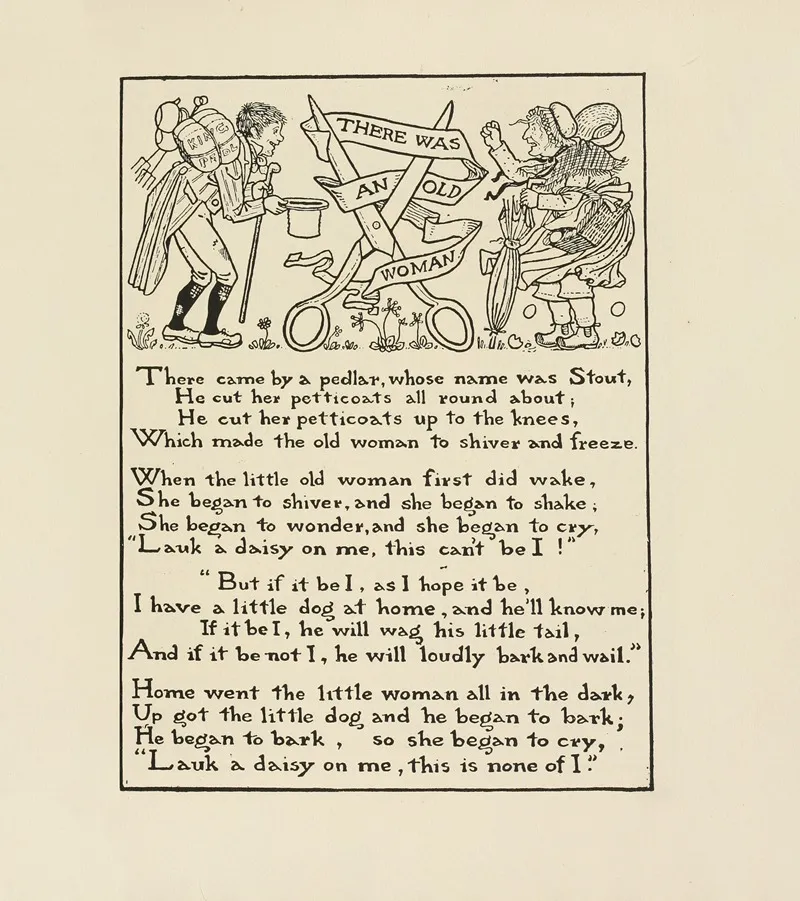 KING
THERE WAS
AN OLD
WOMAN
There came by a pedlar, whose name was Stout,
He cut her petticoats all round about;
He cut her petticoats up to the knees,
Which made the old woman to shiver and freeze.
When the little old woman first did wake,
She began to shiver, and she began to shake;
She began to wonder, and she began to cry,
"Lauk a daisy on me, this can't be I !"
"But if it be I, as I hope it be,
I have a little dog at home, and he'll know me;
If it be I, he will wag his little tail,
And if it be not I, he will loudly bark and wail."
Home went the little woman all in the dark,
Up got the little dog and he began to bark;
He began to bark, so she began to cry,
"Lauk a daisy on me, this is none of I."